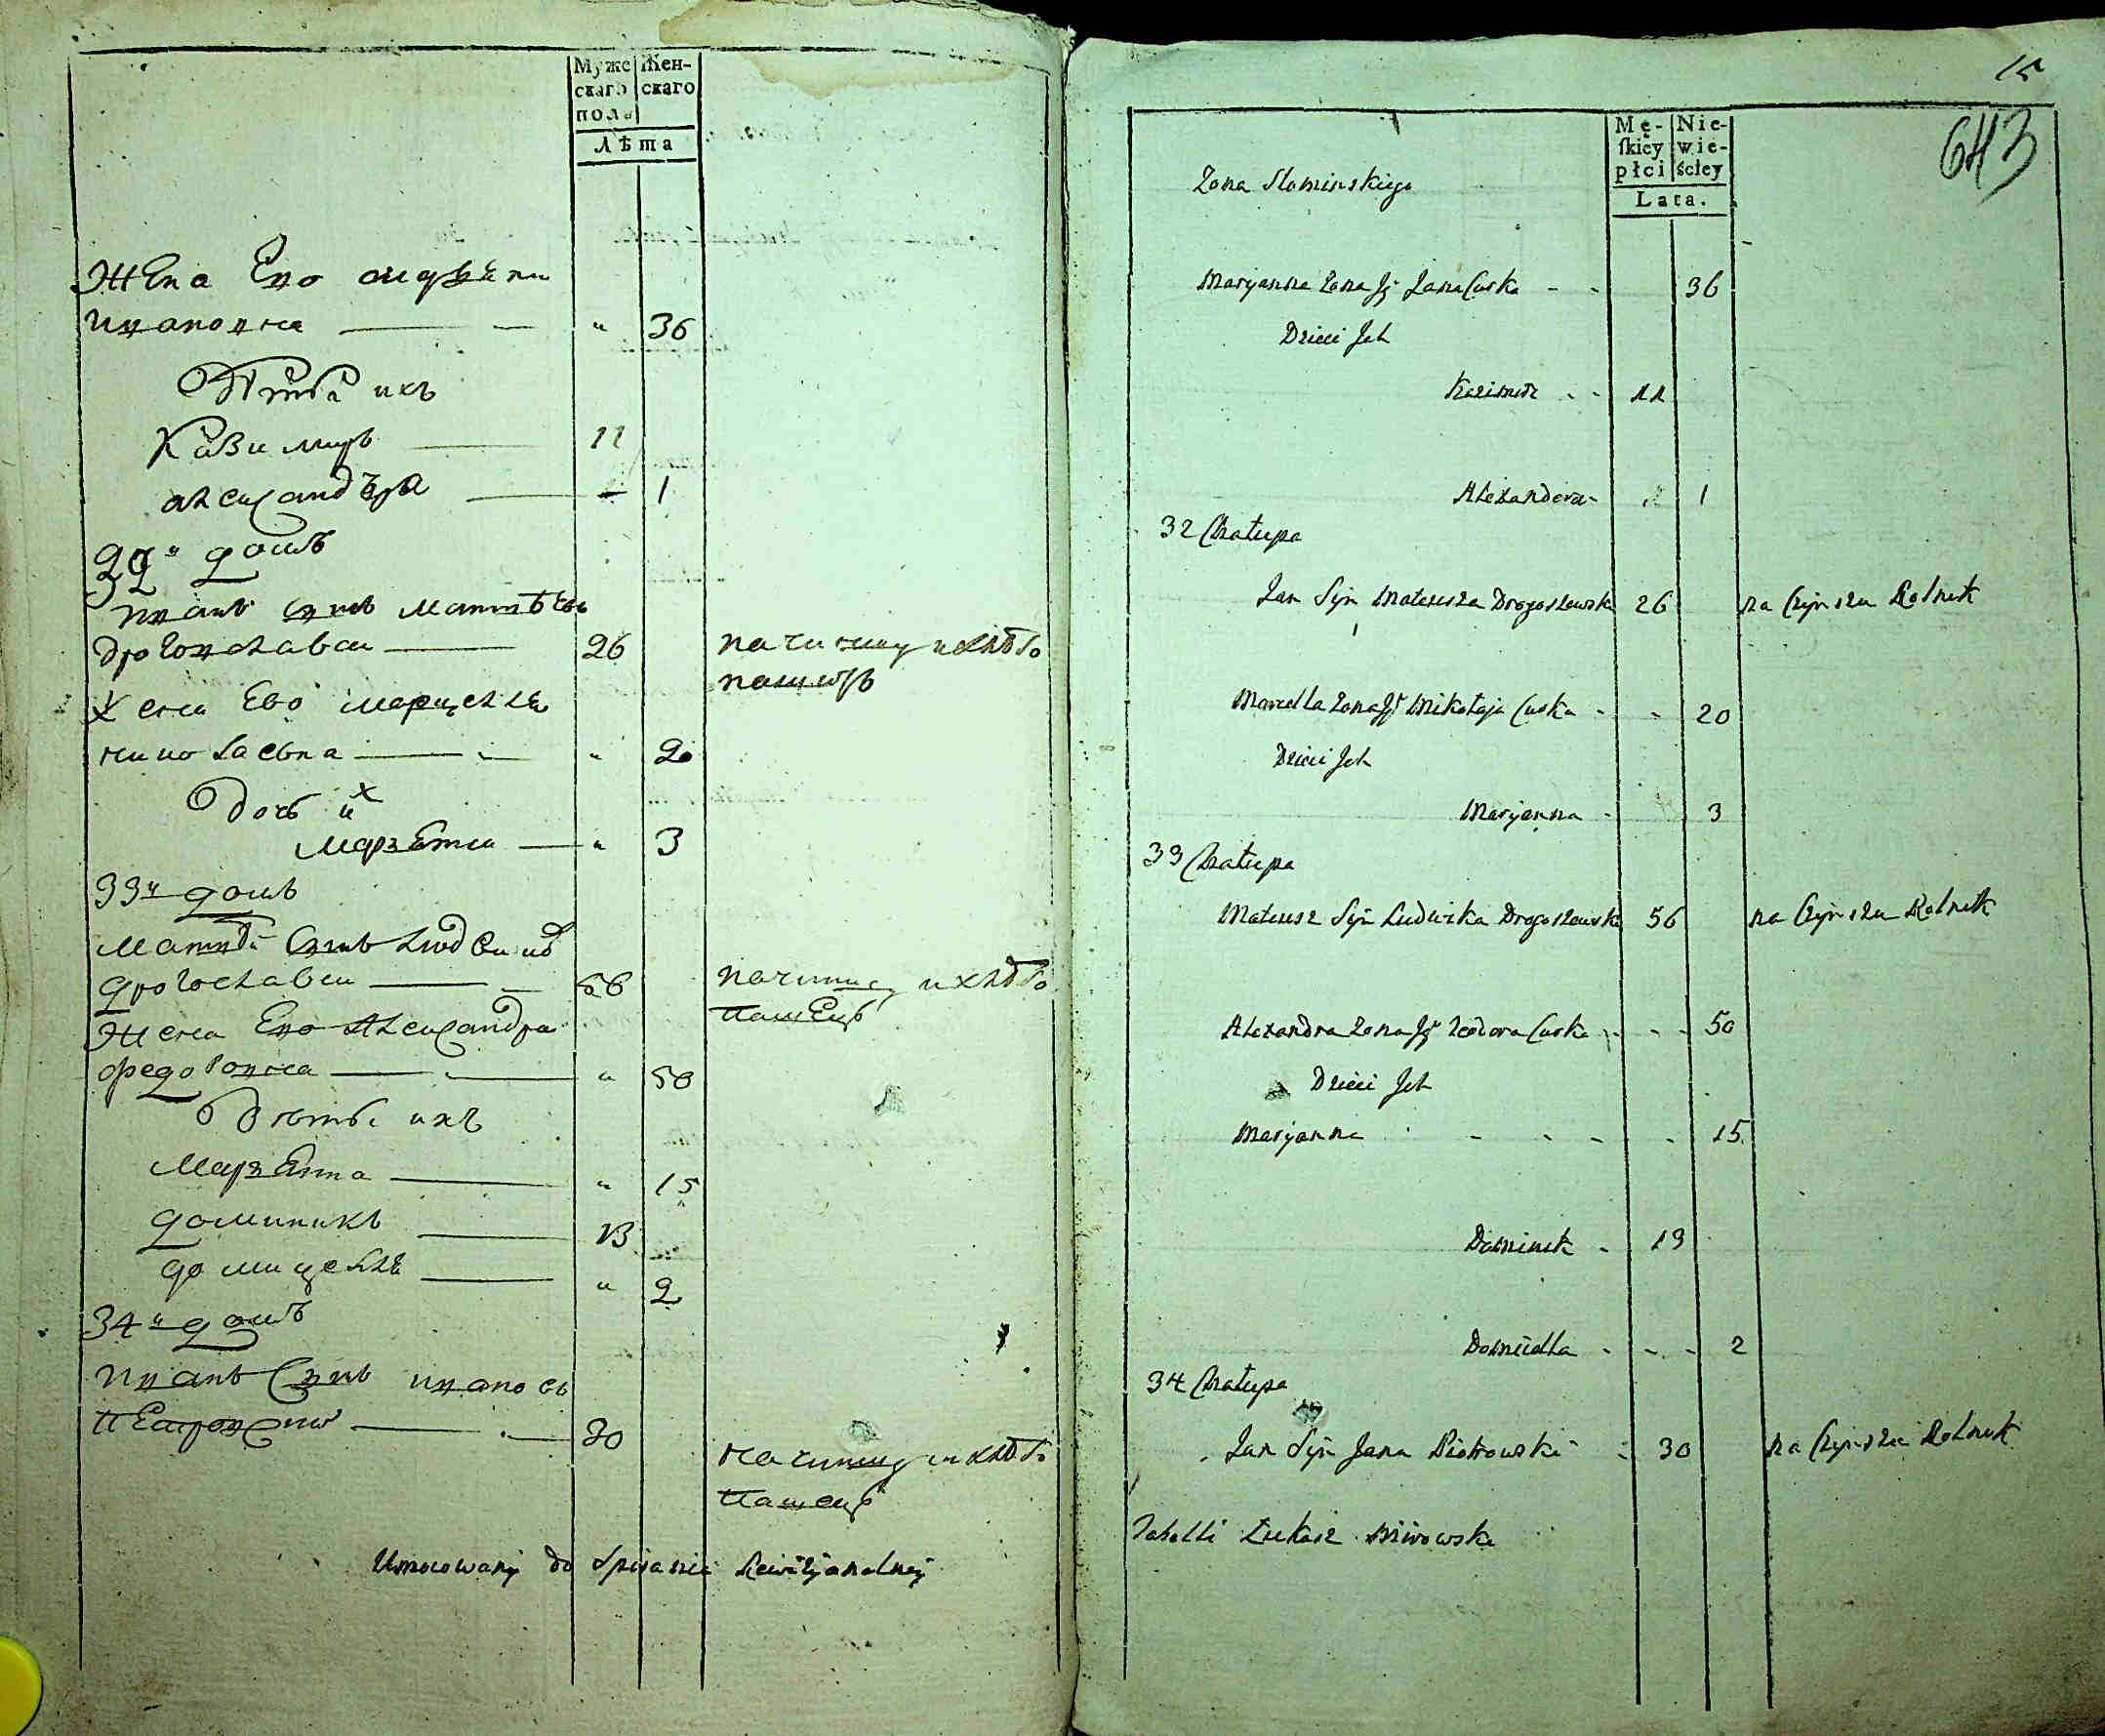 Муже
скаго
пола
Жен-
скаго
Лѣта
Жена Ево
Ивановна — 36
Дѣти ихъ
Казимиръ — 11
Александра — 1
32й домъ
Иванъ Сынъ Матвѣевъ
Дрогославски — 26 на чиншу и хлѣбо
пашецъ
Жена Ево Марцелла
Николаевна — 20
Дочь их
Марянна — 3
33й домъ
Матвѣй Сынъ Людвиковъ
Дрогославски — 56 на чиншу и хлѣбо
пашецъ
Жена Ево Александра
Федоровна — 50
Дѣти ихъ
Марянна — 15
Доминикъ — 13
Домицелля — 2
34й домъ
Иванъ Сынъ Ивановъ
Петровскій — 30 на чиншу и хлѣбо
пашецъ
Umocowany do Spisania Rewizjonalney
15
643
Mę-
skiey
płci
Nie-
wie-
ściey
Lata.
Zona Slominskiego
Maryanna Zona Jg Jana Curka - - 36
Dzieci Jch
Kazimirz - - 11
Alexandera - 1
32 Chałupa
Jan Syn Mateusza Drogoszewski 26 na Czynszu Rolnik
Marcella Zona Jg Mikołaja Curka - - 20
Dzieci Jch
Maryanna - 3
33 Chałupa
Mateusz Syn Ludwika Drogoszewski 56 na Czynszu Rolnik
Alexandra Zona Jg Teodora Curka - - - 50
Dzieci Jch
Maryanna - - - - 15
Dominik - 13
Domicella - - - 2
34 Chałupa
Jan Syn Jana Piotrowski 30 na Czynszu Rolnik
Łukasz